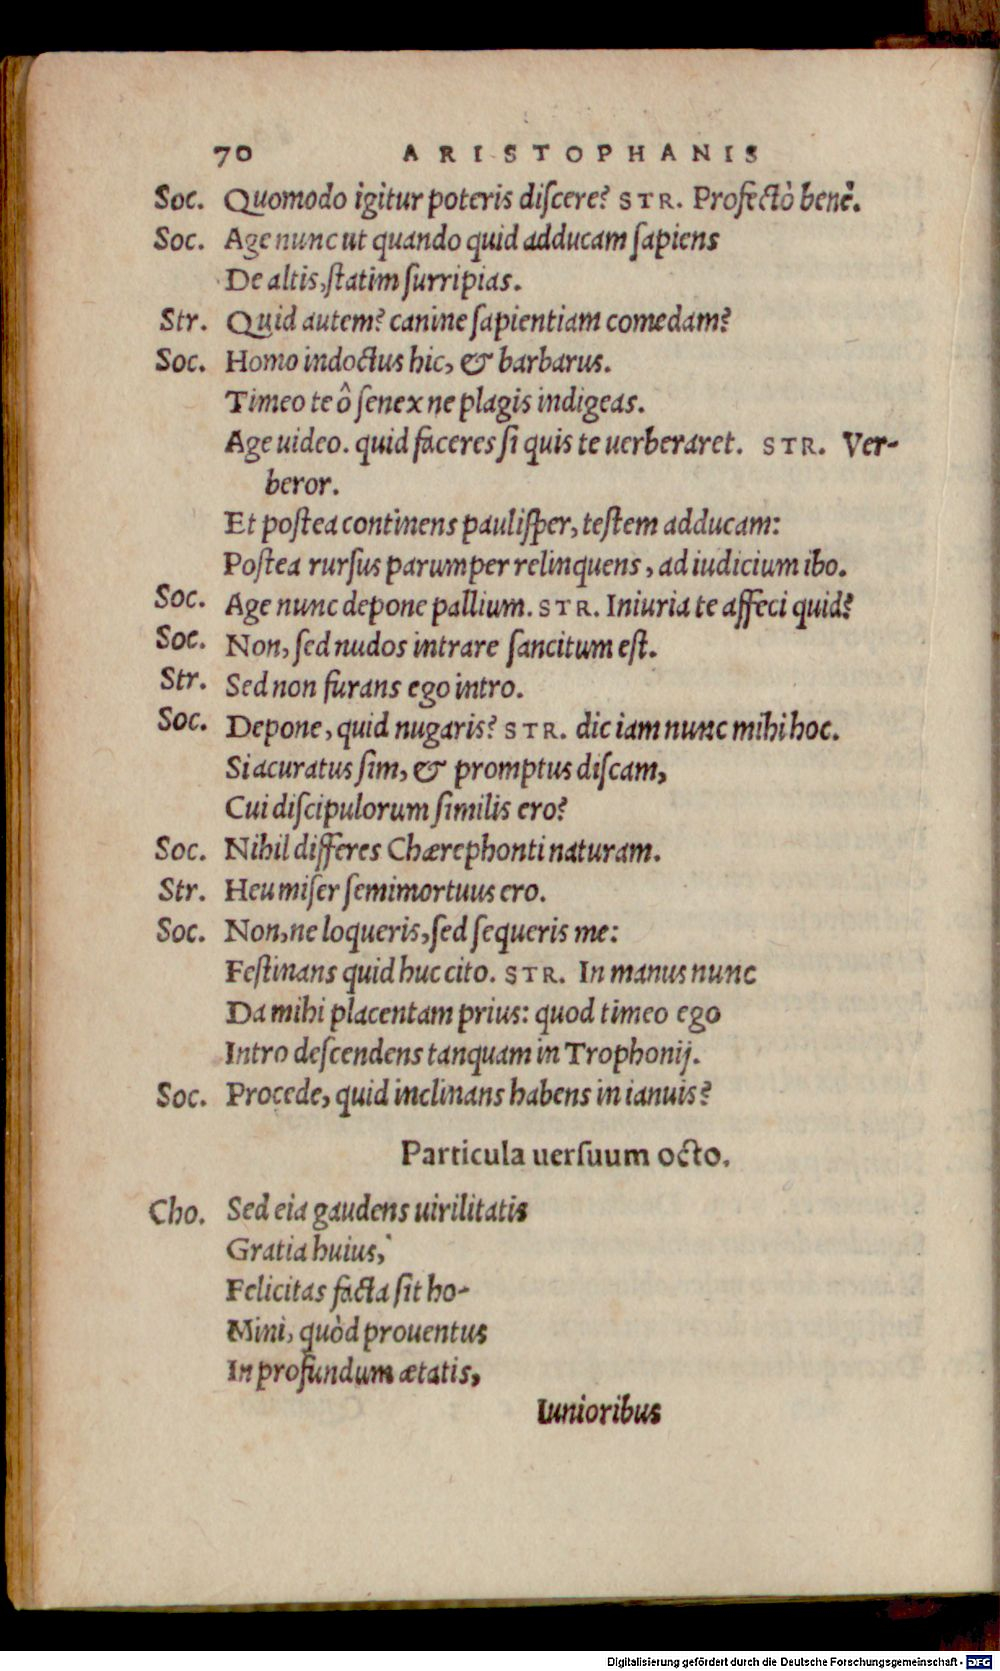 70 ARISTOPHANIS
Soc. Quomodo igitur poteris diſcere? STR. Profectò benè.
Soc. Age nunc ut quando quid adducam ſapiens
De altis, ſtatim ſurripias.
Str. Quid autem? canine ſapientiam comedam?
Soc. Homo indoctus hic, & barbarus.
Timeo te ô ſenex ne plagis indigeas.
Age uideo. quid faceres ſi quis te uerberaret. STR. Ver-
beror.
Et poſtea continens pauliſper, teſtem adducam:
Poſtea rurſus parumper relinquens, ad iudicium ibo.
Soc. Age nunc depone pallium. STR. Iniuria te affeci quid?
Soc. Non, ſed nudos intrare ſancitum eſt.
Str. Sed non furans ego intro.
Soc. Depone, quid nugaris? STR. dic iam nunc mihi hoc.
Si acuratus ſim, & promptus diſcam,
Cui diſcipulorum ſimilis ero?
Soc. Nihil differes Chærephonti naturam.
Str. Heu miſer ſemimortuus ero.
Soc. Non, ne loqueris, ſed ſequeris me:
Feſtinans quid huc cito. STR. In manus nunc
Da mihi placentam prius: quod timeo ego
Intro deſcendens tanquam in Trophonij.
Soc. Procede, quid inclinans habens in ianuis?
Particula uerſuum octo.
Cho. Sed eia gaudens uirilitatis
Gratia huius,
Felicitas facta ſit ho-
Mini, quòd prouentus
In profundum ætatis,
Iunioribus
Digitalisierung gefördert durch die Deutsche Forschungsgemeinschaft - DFG